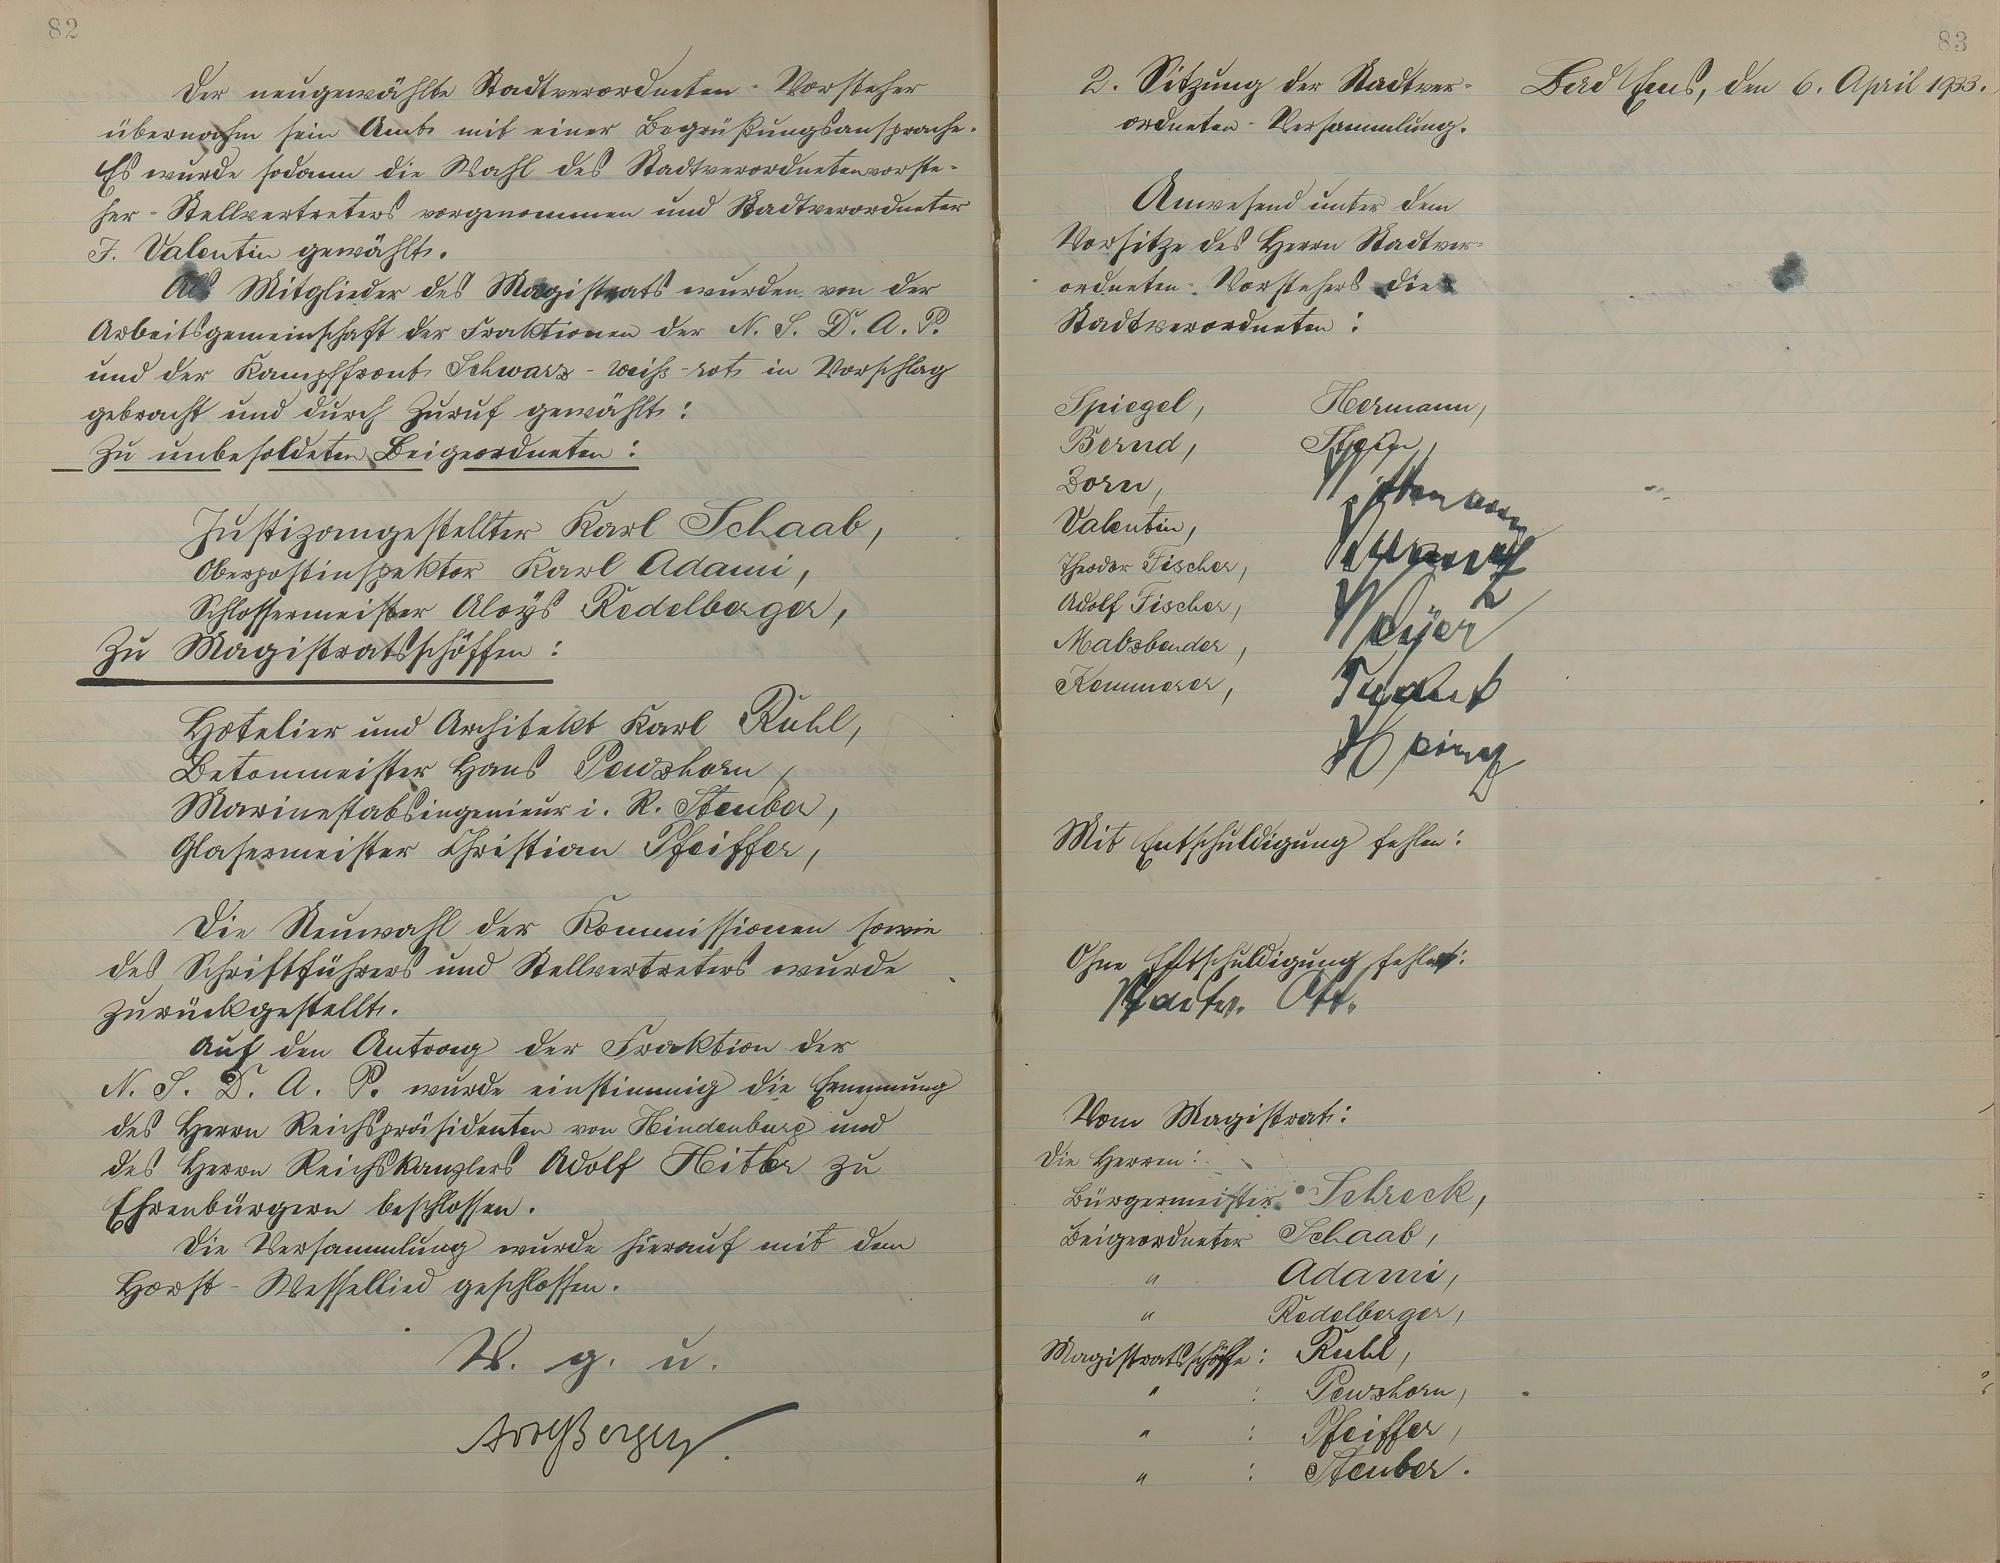 82
Der neugewählte Stadtverordneten-Vorsteher
übernahm sein Amt mit einer Begrüßungsansprache.
Es wurde sodann die Wahl des Stadtverordnetenvorste-
her-Stellvertreters vorgenommen und Stadtverordneter
F. Valentin gewählt.
Als Mitglieder des Magistrats wurden von der
Arbeitsgemeinschaft der Fraktionen der N. S. D. A. P.
und der Kampffront Schwarz-weiß-rot in Vorschlag
gebracht und durch Zuruf gewählt:
Zu unbesoldeten Beigeordneten:
Justizangestellter Karl Schaab,
Oberpostinspektor Karl Adami,
Schlossermeister Aloys Redelberger,
Zu Magistratsschöffen:
Hotelier und Architekt Karl Ruhl,
Betonmeister Hans Pewzhorn,
Marinestabsingenieur i. R. Steuber,
Glasermeister Christian Pfeiffer,
Die Neuwahl der Kommissionen sowie
des Schriftführers und Stellvertreters wurde
zurückgestellt.
Auf den Antrag der Fraktion der
N. S. D. A. P. wurde einstimmig die Ernennung
des Herrn Reichspräsidenten von Hindenburg und
des Herrn Reichskanzlers Adolf Hitler zu
Ehrenbürgern beschlossen.
Die Versammlung wurde hierauf mit dem
Horst-Wessellied geschlossen.
V. g. u.
83
2. Sitzung der Stadtver-
ordneten-Versammlung.
Bad Ems, den 6. April 1933.
Anwesend unter dem
Vorsitze des Herrn Stadtver-
ordneten-Vorstehers die
Stadtverordneten:
Spiegel, Hermann,
Bernd,
Born,
Valentin,
Theodor Fischer,
Adolf Fischer, Meyer
Mabzbender,
Kemmerer,
Mit Entschuldigung fehlen:
Ohne Entschuldigung fehlt:
Stadtv. Ott.
Vom Magistrat:
Die Herren:
Bürgermeister Schreck,
Beigeordneter Schaab,
" Adami,
" Redelberger,
Magistratsschöffe: Ruhl,
" : Pewzhorn,
" : Pfeiffer,
" : Steuber.